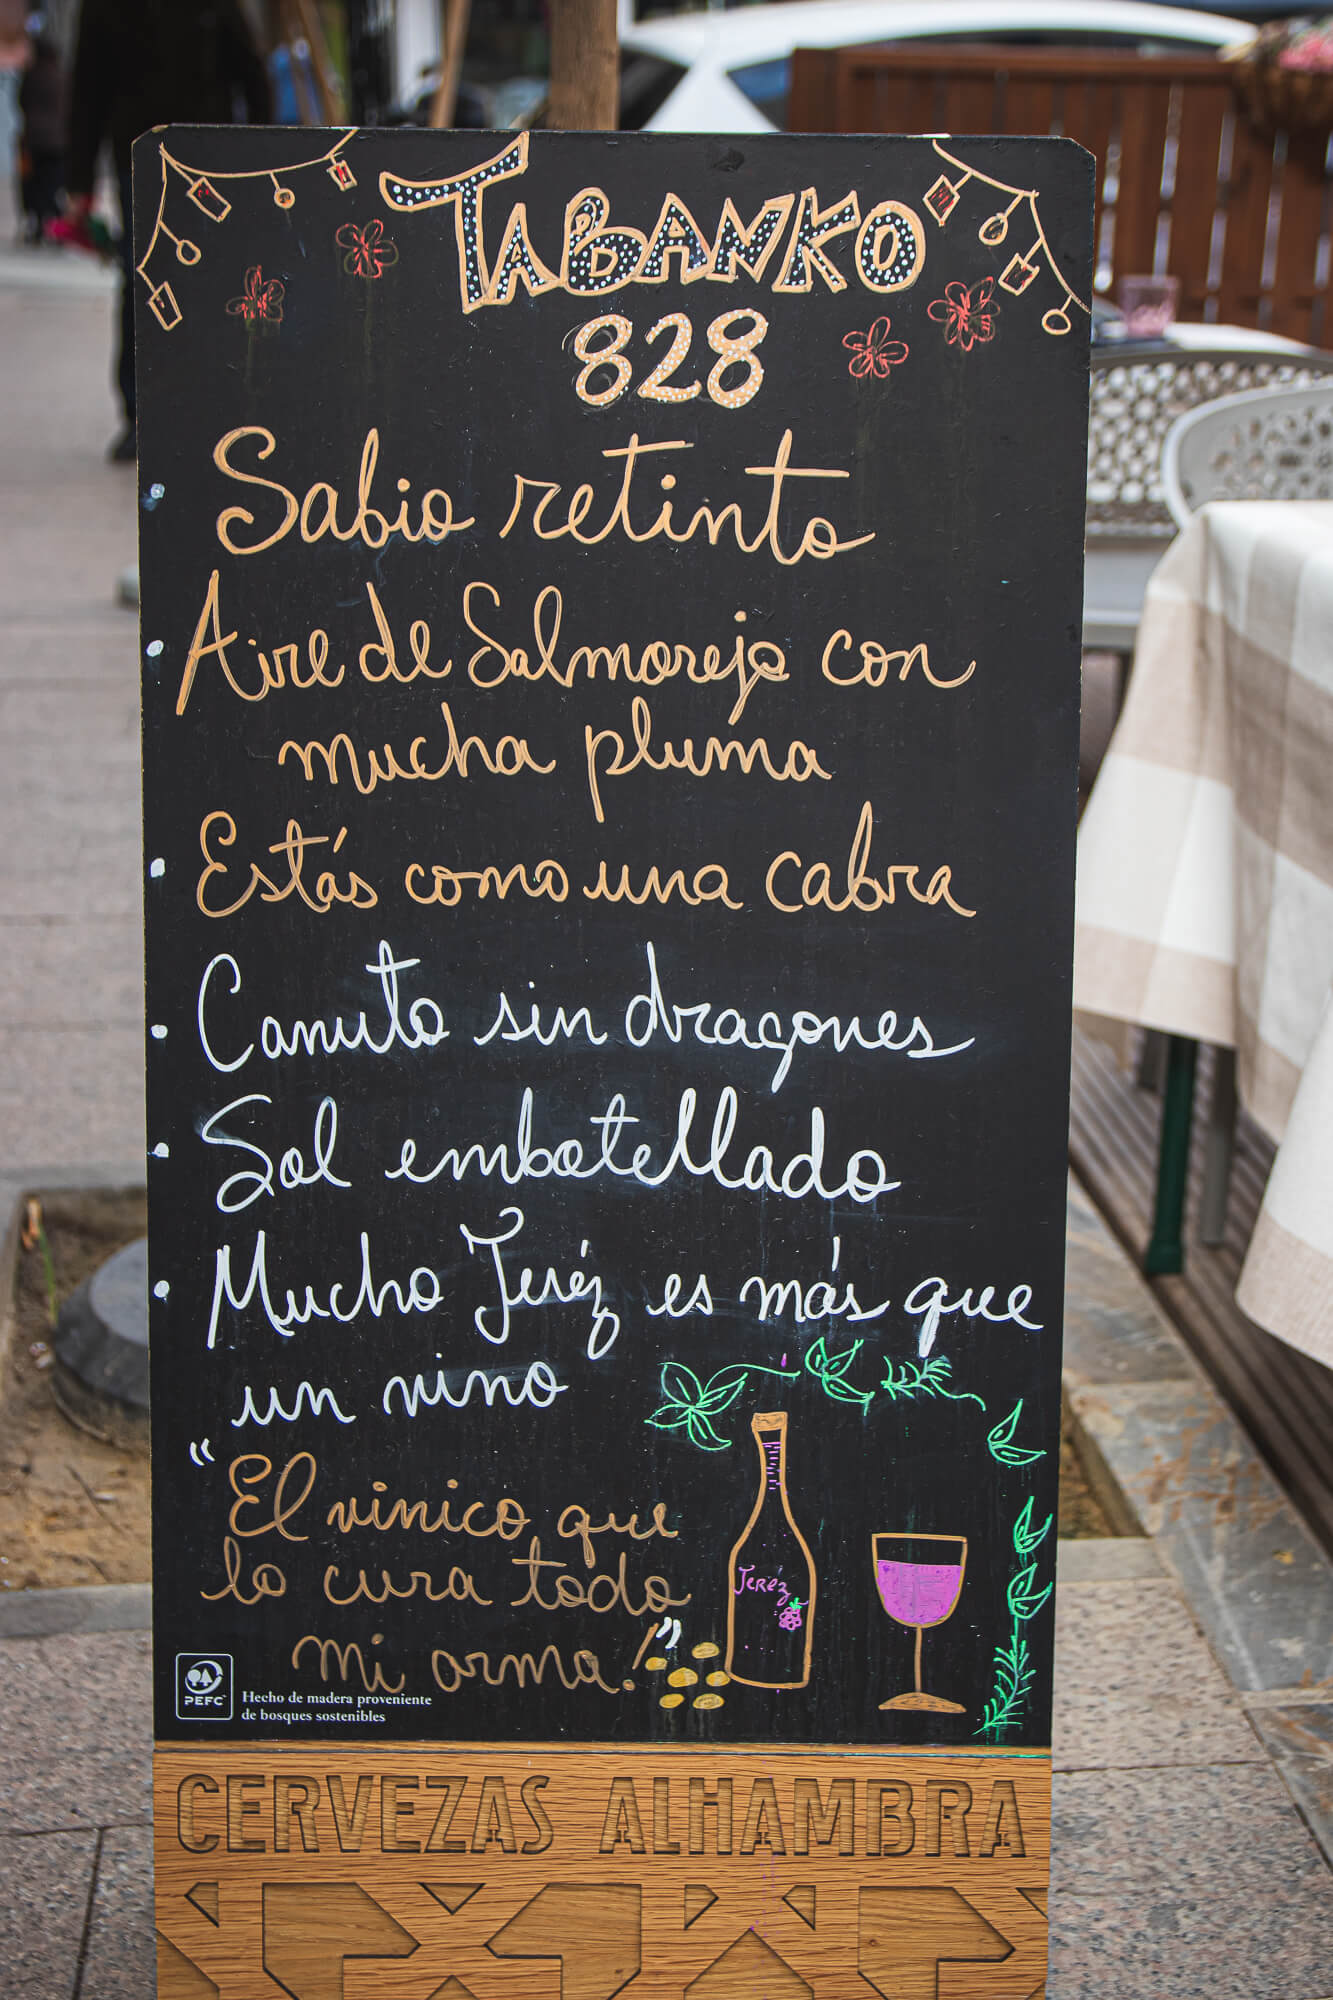 TABANKO
828
• Sabio retinto
• Aire de Salmorejo con
mucha pluma
• Estás como una cabra
• Canuto sin dragones
• Sol embotellado
• Mucho Jeréz es más que
un vino
“El vinico que
lo cura todo
mi arma!”
Jeréz
PEFC™
Hecho de madera proveniente
de bosques sostenibles
CERVEZAS ALHAMBRA